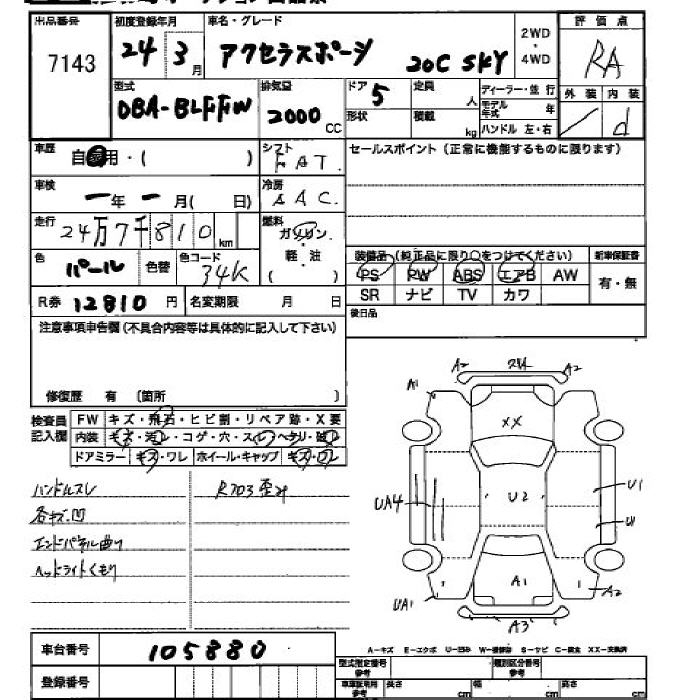 出品番号 初度登録年月 車名・グレード 2WD・4WD 評価点
7143 24 3月 アクセラスポーツ 20C SKY RA
型式 排気量 ドア 定員 ディーラー・並行 外装 内装
DBA-BLFFW 2000CC 5 人 モデル年式 年 d
形状 積載 kg ハンドル 左・右
車歴 自家用・( ) シフト FAT セールスポイント(正常に機能するものに限ります)
車検 一年一月( 日) 冷房 AAC
走行 24万7千810km 燃料 ガソリン・軽・油 ( )
色 パール 色替 色コード 34K
装備品 (純正品に限り○をつけてください) 新車保証書
PS PW ABS エアB AW 有・無
SR ナビ TV カワ
R券 12810円 名変期限 月 日
後日品
注意事項申告欄(不具合内容等は具体的に記入して下さい)
修復歴 有 〔箇所 〕
検査員記入欄 FW キズ・飛石・ヒビ割・リペア跡・X要
内装 キズ・汚レ・コゲ・穴・スレ・ヘタリ・破レ
ドアミラー キズ・ワレ ホイール・キャップ キズ・ワレ
ハンドルスレ
各キズ凹
エンドパネル曲り
ヘッドライトくもり
R703歪み
A2 A2
A1
XX
UA4 U2 U1
U1
UA1 A1 A2
A3
車台番号 105880
A-キズ E-エクボ U-凹み W-補修跡 S-サビ C-腐食 XX-交換済
登録番号
型式指定番号 参考 類別区分番号 参考
車車証明用 参考 長さ cm 幅 cm 高さ cm